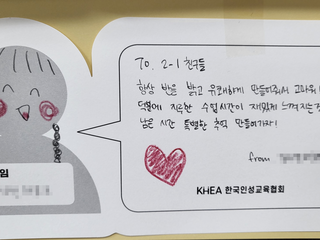 To. 2-1 친구들
항상 반을 밝고 유쾌하게 만들어줘서 고마워!
덕분에 지루한 수업시간이 재밌게 느껴지는
남은 시간 특별한 추억 만들어가자!
from
임
KHEA 한국인성교육협회